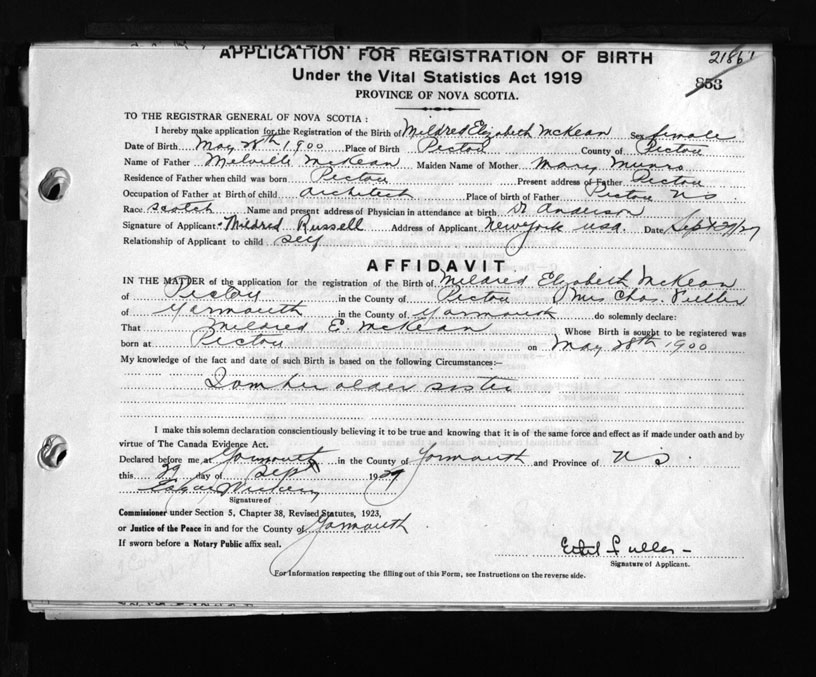 APPLICATION FOR REGISTRATION OF BIRTH
21861
Under the Vital Statistics Act 1919
853
PROVINCE OF NOVA SCOTIA.
TO THE REGISTRAR GENERAL OF NOVA SCOTIA:
I hereby make application for the Registration of the Birth of Mildred Elizabeth McKean Sex female
Date of Birth May 28th 1900 Place of Birth Pictou County of Pictou
Name of Father Melville McKean Maiden Name of Mother Mary Munro
Residence of Father when child was born Pictou Present address of Father Pictou
Occupation of Father at Birth of child architect Place of birth of Father Pictou NS
Race Scotch Name and present address of Physician in attendance at birth Dr Anderson
Signature of Applicant Mildred Russell Address of Applicant New York USA. Date Sept 29/29
Relationship of Applicant to child self
AFFIDAVIT
IN THE MATTER of the application for the registration of the Birth of Mildred Elizabeth McKean
of Pictou in the County of Pictou I Mrs Chas. Fuller
of Yarmouth in the County of Yarmouth do solemnly declare:
That Mildred E. McKean Whose Birth is sought to be registered was
born at Pictou on May 28th 1900
My knowledge of the fact and date of such Birth is based on the following Circumstances:—
I am her older sister
I make this solemn declaration conscientiously believing it to be true and knowing that it is of the same force and effect as if made under oath and by
virtue of The Canada Evidence Act.
Declared before me at Yarmouth in the County of Yarmouth and Province of NS
this 29 day of Sept 1929
Signature of
Commissioner under Section 5, Chapter 38, Revised Statutes, 1923,
or Justice of the Peace in and for the County of Yarmouth.
If sworn before a Notary Public affix seal.
Ethel Fuller
Signature of Applicant.
For Information respecting the filling out of this Form, see Instructions on the reverse side.